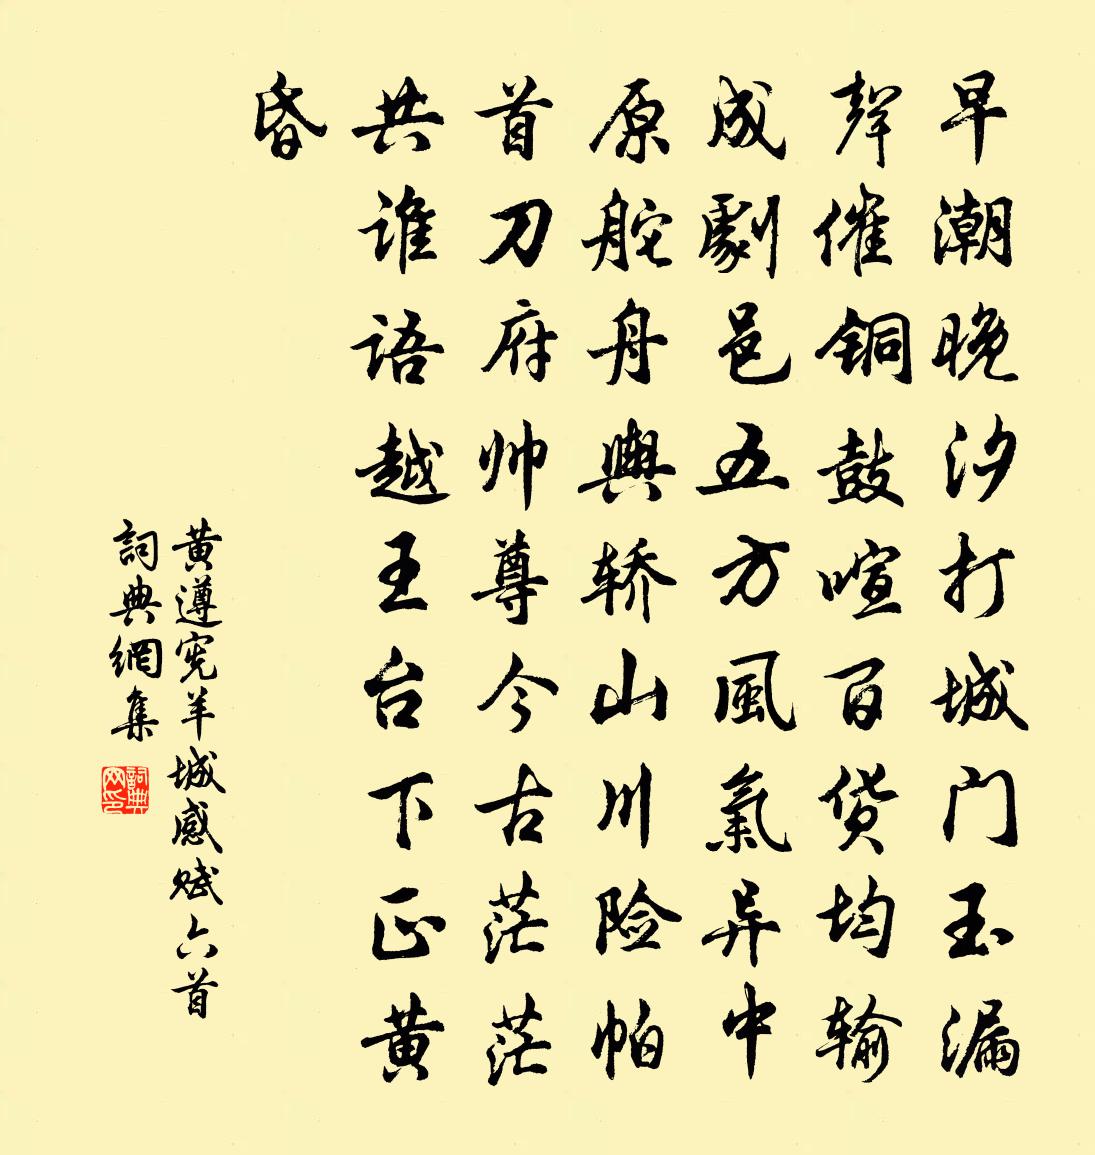 早潮晚汐打城门玉漏
声催铜鼓喧百货均输
成剧邑五方風氣异中
原舵舟輿轿山川险帕
首刀府帅尊今古茫茫
共谁语越王台下正黄
昏
黄遵宪羊城感赋六首
詞典網集
詞典网印